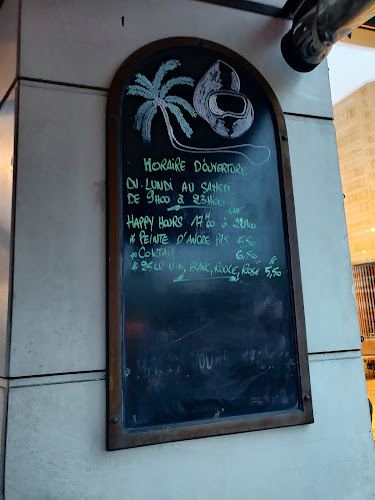 HORAIRE D'OUVERTURE
DU LUNDI AU SAMEDI
DE 9H00 à 23H00
HAPPY HOURS 17H00 à 22H00
* PEINTE D'ANCRE PILS 5,50
* COKTAIL 6,50
* 25 CL VIN, BLANC, ROUGE, ROSE 5,50